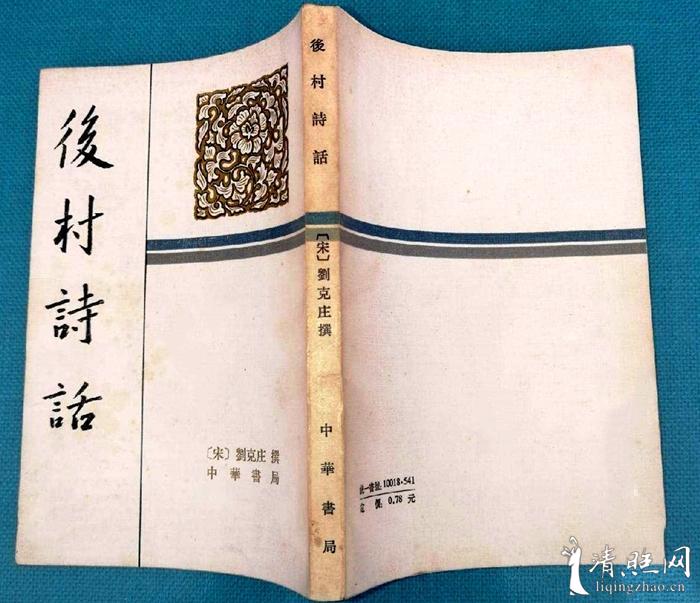 後村詩話
〔宋〕劉克庄撰
中華書局
後村詩話
〔宋〕劉克庄撰
中華書局
統一書號:10018·541
定價:0.78元
清照网
liqingzhao.cn